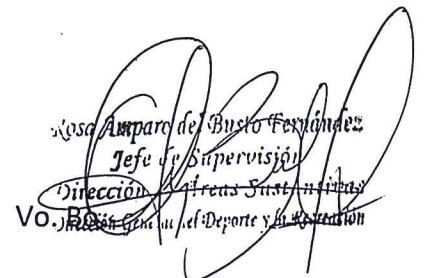 Rosa Amparo del Busto Fernández
Jefe de Supervisión
Dirección Áreas Sustantivas
Vo. Bo.
Dirección General del Deporte y la Recreación